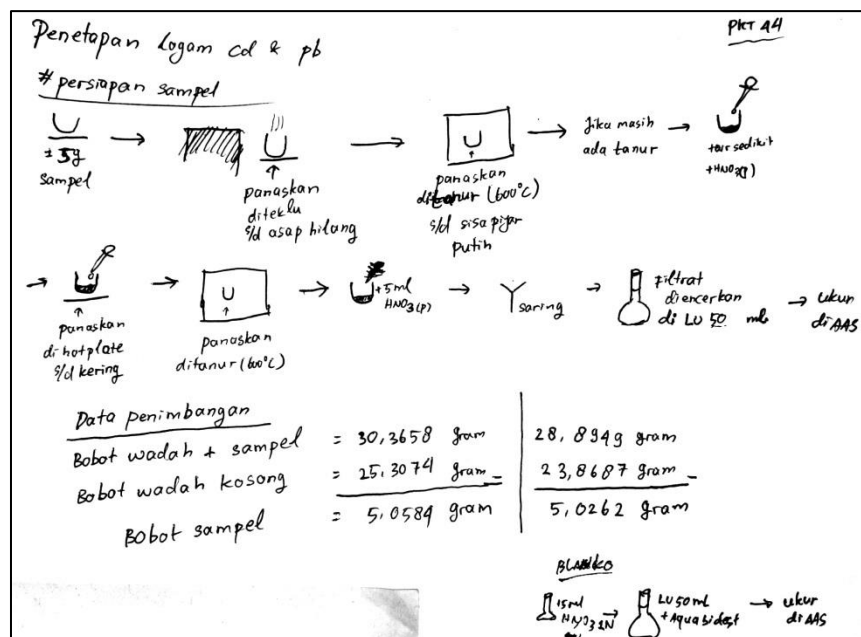 Penetapan Logam Cd & pb
PKT A4
# persiapan sampel
± 5g
sampel
panaskan
diteklu
s/d asap hilang
panaskan
ditanur (600°C)
s/d sisa pijar
putih
Jika masih
ada tanur
sedikit
+HNO3(p)
panaskan
di hotplate
s/d kering
panaskan
ditanur (600°C)
+5ml
HNO3(p)
saring
Filtrat
diencerkan
di LU 50 ml
ukur
di AAS
Data penimbangan
Bobot wadah + sampel = 30,3658 gram 28,8949 gram
Bobot wadah kosong = 25,3074 gram - 23,8687 gram -
Bobot sampel = 5,0584 gram 5,0262 gram
BLANKO
15ml
LU 50ml
+ Aquabidest
ukur
di AAS